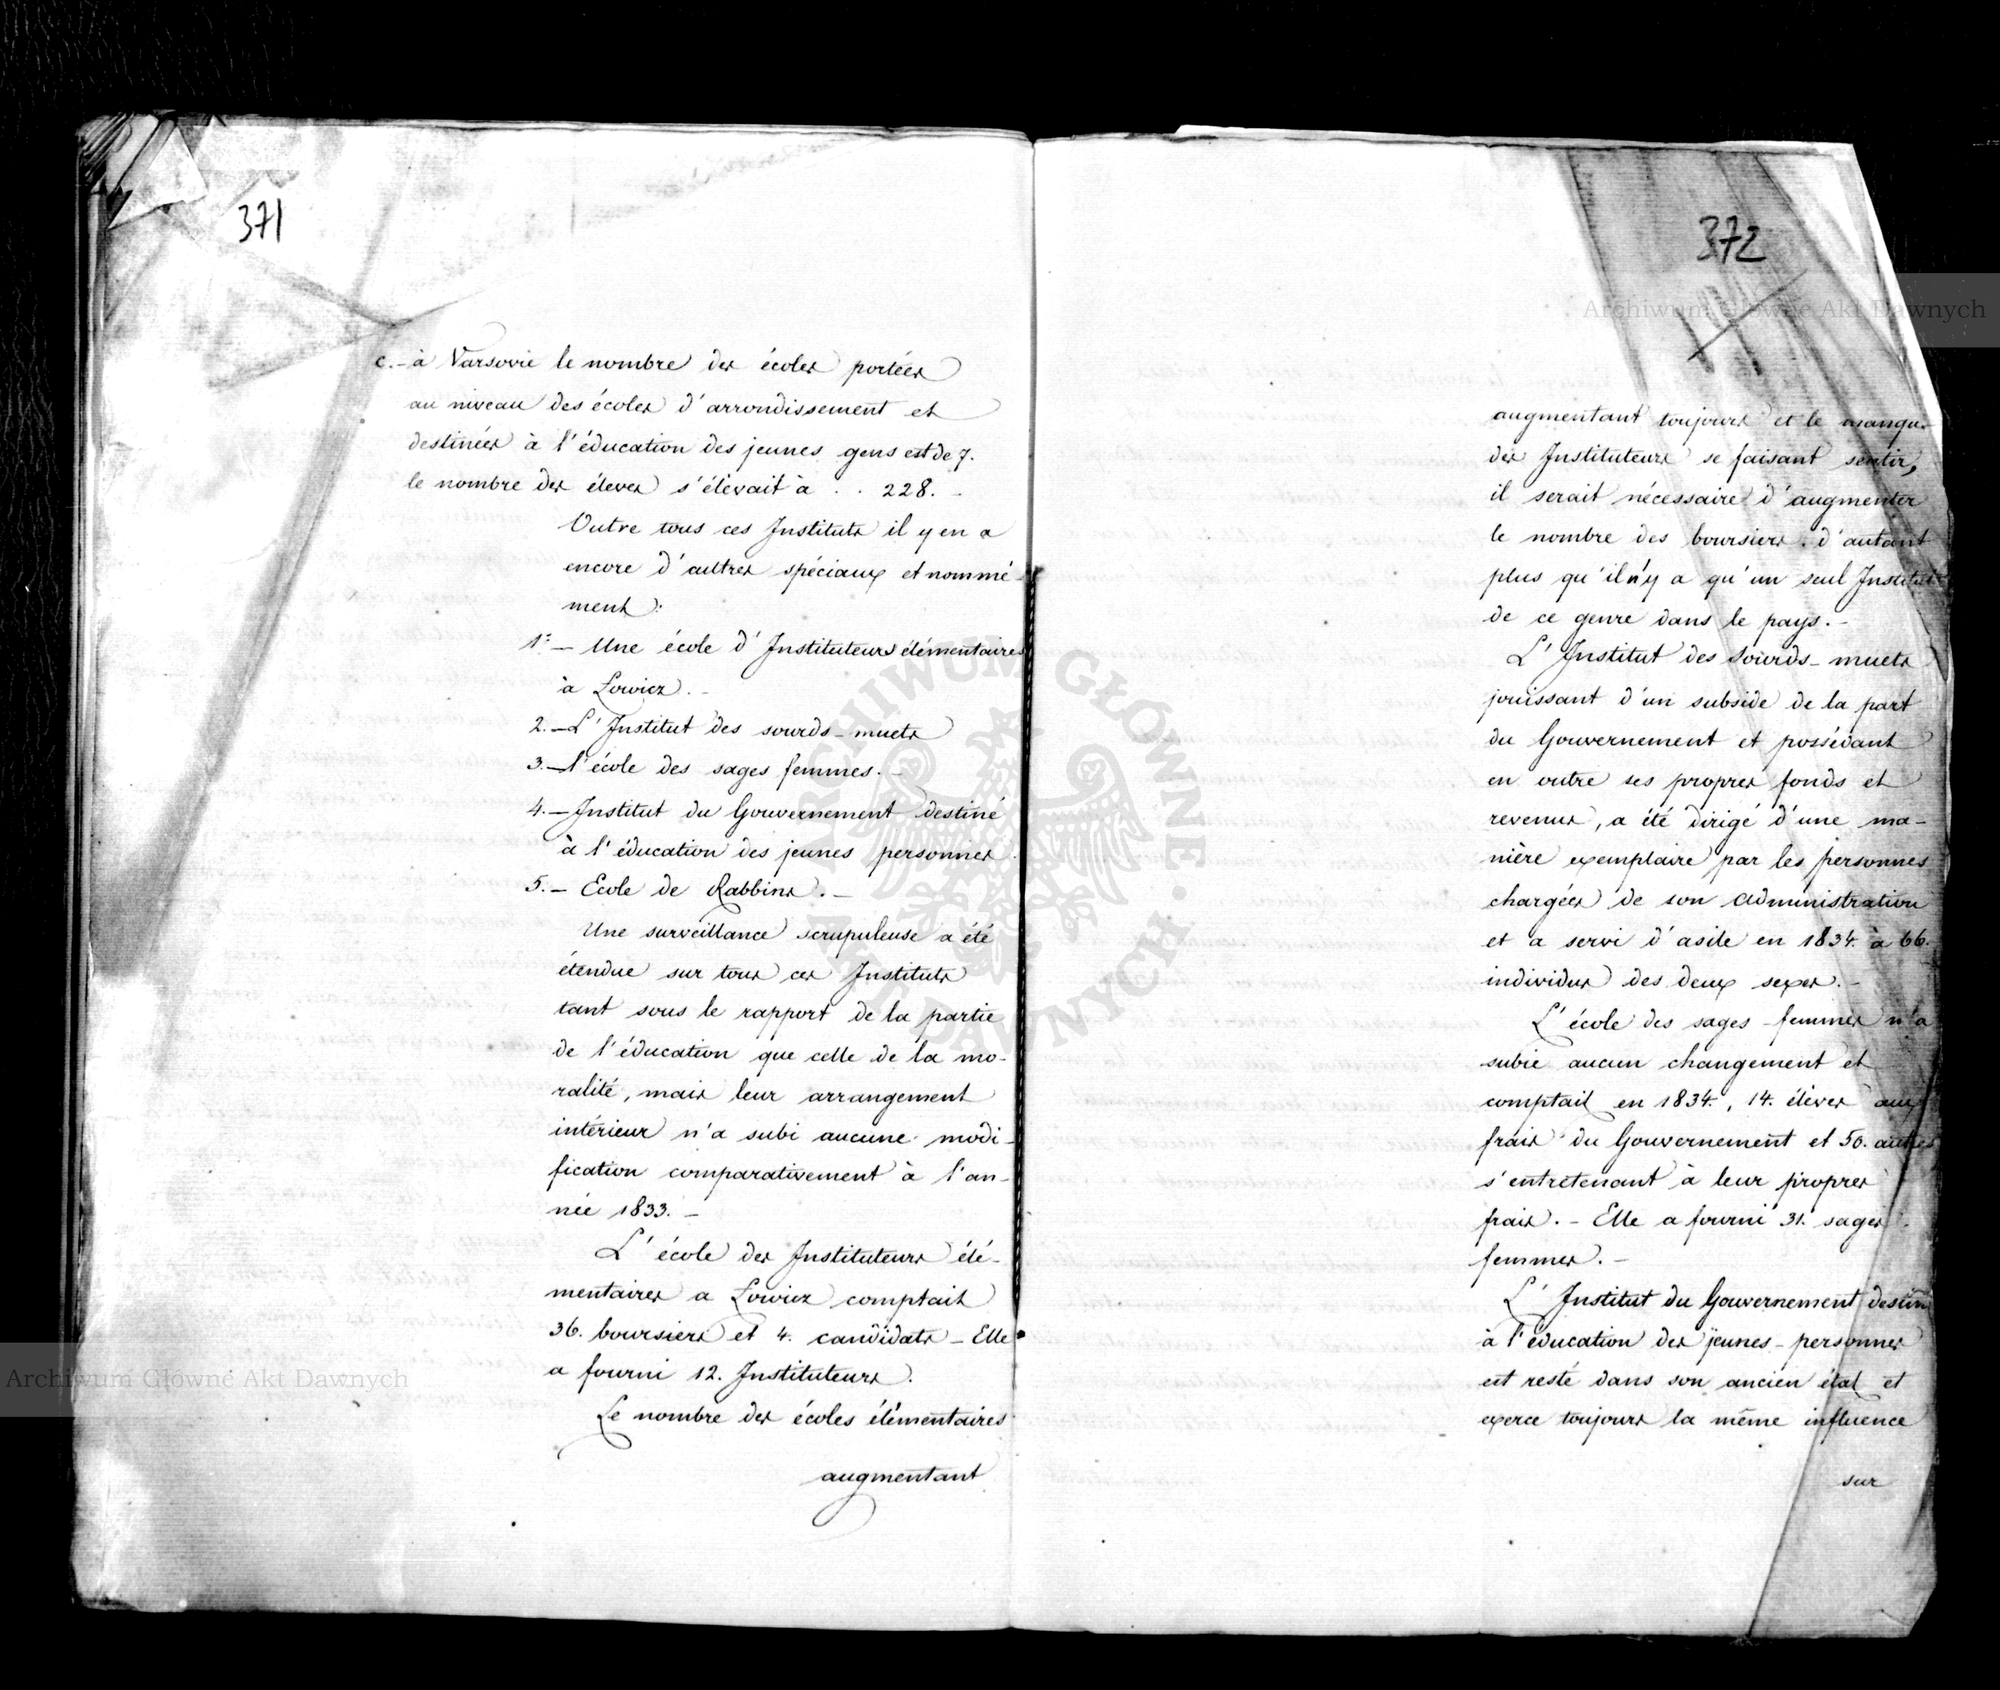 371
c. - à Varsovie le nombre des écoles portées
au niveau des écoles d'arrondissement et
destinées à l'éducation des jeunes gens est de 7.
le nombre des éleves s'élevait à . . 228. -
Outre tous ces Instituts il y en a
encore d'autres spéciaux et nommé-
ment:
1º - Une école d'Instituteurs élémentaires
à Lowicz. -
2. - L'Institut des sourds-muets
3. - l'école des sages femmes. -
4. - Institut du Gouvernement destiné
à l'éducation des jeunes personnes.
5. - Ecole de Rabbins. -
Une surveillance scrupuleuse a été
étendue sur tous ces Instituts
tant sous le rapport de la partie
de l'éducation que celle de la mo-
ralité, mais leur arrangement
intérieur n'a subi aucune modi-
fication comparativement à l'an-
née 1833. -
L'école des Instituteurs élé-
mentaires a Lowicz comptait
36. boursiers et 4. candidats - Elle
a fourni 12. Instituteurs.
Le nombre des écoles élémentaires
augmentant
372
augmentant toujours et le manqu
des Instituteurs se faisant sentir,
il serait nécessaire d'augmenter
le nombre des boursiers. d'autant
plus qu'il n'y a qu'un seul Institut
de ce genre dans le pays. -
L'Institut des Sourds-muets
jouissant d'un subside de la part
du Gouvernement et possédant
en outre ses propres fonds et
revenus, a été dirigé d'une ma-
nière exemplaire par les personnes
chargées de son administration
et a servi d'asile en 1834. à 66.
individus des deux sexes. -
L'école des sages-femmes n'a
subie aucun changement et
comptait en 1834., 14. élèves aux
frais du Gouvernement et 50. autres
s'entretenant à leur propres
frais. - Elle a fourni 31. sages-
femmes. -
L'Institut du Gouvernement destin
à l'éducation des jeunes-personnes
est resté dans son ancien état et
exerce toujours la même influence
sur
Archiwum Główne Akt Dawnych
Archiwum Główne Akt Dawnych
ARCHIWUM GŁÓWNE AKT DAWNYCH